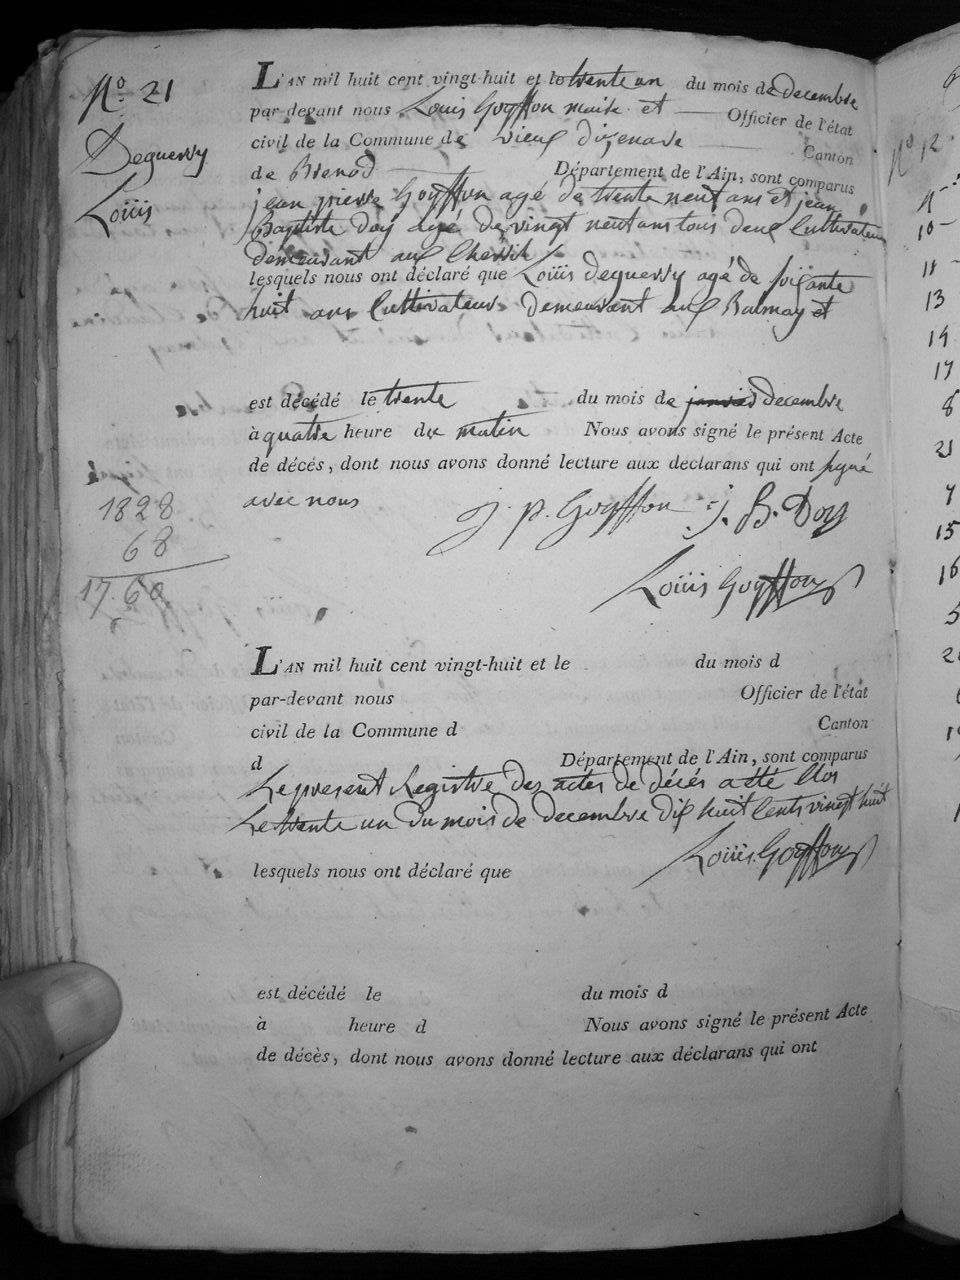 No. 21
Deguerry
Louis
L'AN mil huit cent vingt-huit et le trente un du mois de decembre
par-devant nous Louis Goyffon maire et Officier de l'état
civil de la Commune de vieux dizenave Canton
de Brenod Département de l'Ain, sont comparus
jean pierre Goyffon agé de trente neuf ans et jean
Baptiste Doy agé de vingt neuf ans tous deux Cultivateur
demeurant aux
lesquels nous ont déclaré que Louis deguerry agé de soixante
huit ans Cultivateur demeurant aux Balmay et
est décédé le trente du mois de janvier decembre
à quatre heure du matin Nous avons signé le présent Acte
de décés, dont nous avons donné lecture aux déclarans qui ont signé
avec nous
J. p. Goyffon j. B. Doy
Louis Goyffon
1828
68
1760
L'AN mil huit cent vingt-huit et le du mois d
par-devant nous Officier de l'état
civil de la Commune d Canton
d Département de l'Ain, sont comparus
Le present Registre des actes de décés a eté Clos
Le trente un du mois de decembre dix huit Cents vingt huit
Louis Goyffon
lesquels nous ont déclaré que
est décédé le du mois d
à heure d Nous avons signé le présent Acte
de décès, dont nous avons donné lecture aux déclarans qui ont
No 12
10
11
13
14
17
8
21
7
15
16
5